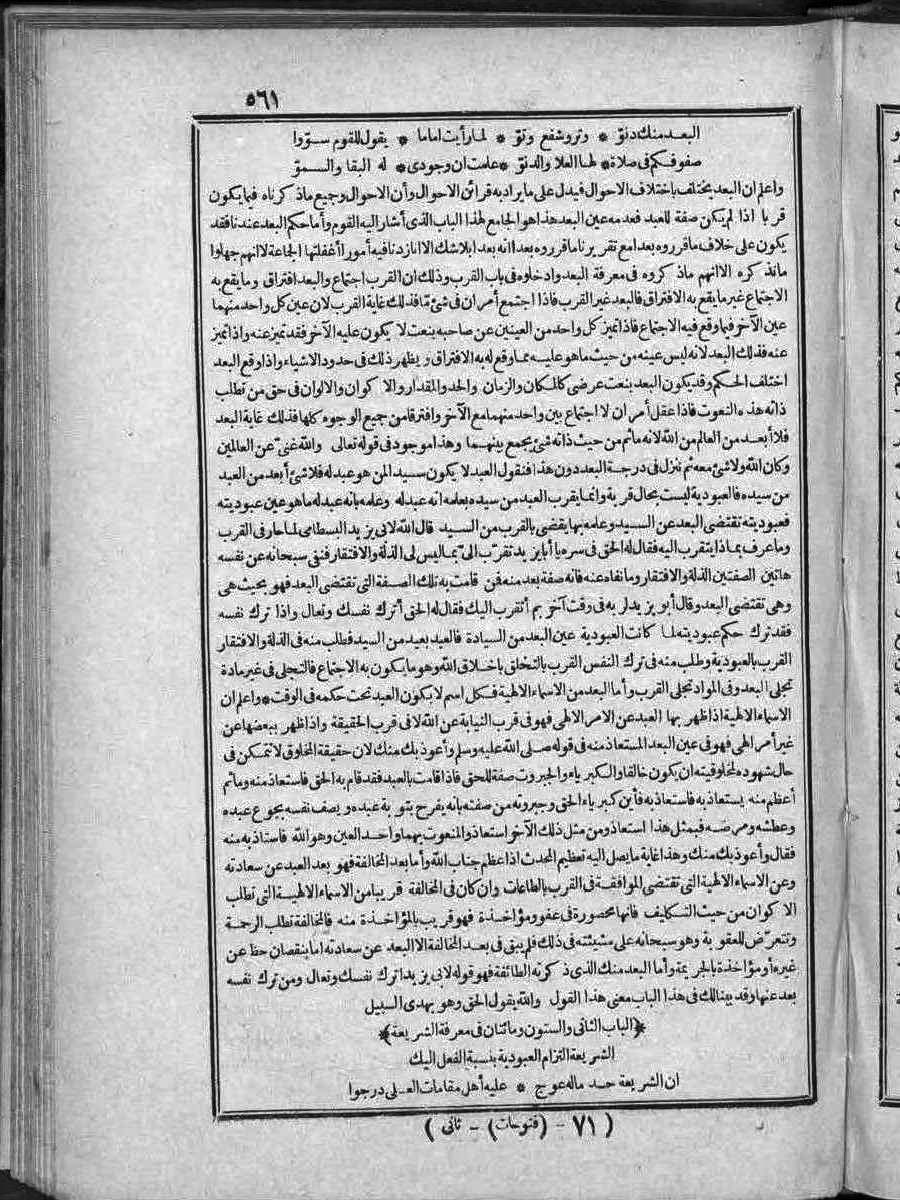 ٥٦١
البعد منك دنوّ * وتر وشفع وتوّ * لما رأيت اماما * يقول للقوم سوّوا
صفوفكم فى صلاة * لها العلا والدنوّ * علمت ان وجودى * له البقا والسموّ
واعلم ان البعد يختلف باختلاف الاحوال فيدل على ما يراد به قرائن الاحوال وأن الاحوال وجميع ماذ كرناه فيما يكون
قربا اذا لم يكن صفة للعبد فعدمه عين البعد هذا هو الجامع لهذا الباب الذى أشار اليه القوم وأما حكم البعد عندنا فقد
يكون على خلاف ما قرروه بعدا مع تقريرنا ما قرروه بعدا انه بعد بلا شك الا انا زدنا فيه أمورا أغفلتها الجماعة لا انهم جهلوا
مانذكره الا انهم ماذكروه فى معرفة البعد وادخلوه فى باب القرب وذلك ان القرب اجتماع والبعد افتراق وما يقع به
الاجتماع غير ما يقع به الافتراق فالبعد غير القرب فاذا اجتمع أمران فى شئ مّا فذلك غاية القرب لان عين كل واحد منهما
عين الآخر فيما وقع فيه الاجتماع فاذا تميز كل واحد من العينين عن صاحبه بنعت لا يكون عليه الآخر فقد تميز عنه واذا تميز
عنه فذلك البعد لانه ليس عينه من حيث ما هو عليه مما وقع له به الافتراق ويظهر ذلك فى حدود الاشياء واذا وقع البعد
اختلف الحكم وقد يكون البعد بنعت عرضى كالمكان والزمان والحد والمقدار والا كوان والالوان فى حق من تطلب
ذاته هذه النعوت فاذا عقل أمران لا اجتماع بين واحد منهما مع الآخر وافترقا من جميع الوجوه كلها فذلك غاية البعد
فلا أبعد من العالم من الله لانه ماثم من حيث ذاته شئ يجمع بينهما وهذا موجود فى قوله تعالى والله غنىّ عن العالمين
وكان الله ولا شئ معه ثم ننزل فى درجة البعد دون هذا فنقول العبد لا يكون سيد المن هو عبد له فلا شئ أبعد من العبد
من سيده فالعبودية ليست بحال قربة وانما يقرب العبد من سيده بعلمه انه عبد له وعلمه بانه عبد له ما هو عين عبوديته
فعبوديته تقتضى البعد عن السيد وعلمه بها يقضى بالقرب من السيد قال الله لابى يزيد البسطامى لما حار فى القرب
وماعرف بماذا يتقرب اليه فقال له الحق فى سره يا أبا يزيد تقرّب الىّ بما ليس لى الذلة والافتقار فنفى سبحانه عن نفسه
هاتين الصفتين الذلة والافتقار وما نفاه عنه فانه صفة بعد منه فمن قامت به تلك الصفة التى تقتضى البعد فهو بحيث هى
وهى تقتضى البعد وقال أبو يزيد لربه فى وقت آخر بم أتقرب اليك فقال له الحق أترك نفسك وتعال واذا ترك نفسه
فقد ترك حكم عبوديته لما كانت العبودية عين البعد من السيادة فالعبد بعيد من السيد فطلب منه فى الذلة والافتقار
القرب بالعبودية وطلب منه فى ترك النفس القرب بالتخلق باخلاق الله وهو ما يكون به الاجتماع فالتجلى فى غير مادة
تجلى البعد وفى المواد تجلى القرب وأما البعد من الاسماء الالهية فكل اسم لا يكون العبد تحت حكمه فى الوقت * واعلم ان
الاسماء الالهية اذا ظهر بها العبد عن الامر الالهى فهو فى قرب النيابة عن الله لا فى قرب الحقيقة واذا ظهر ببعضها عن
غير أمر الهى فهو فى عين البعد المستعاذ منه فى قوله صلى الله عليه وسلم وأعوذ بك منك لان حقيقة المخلوق لا تتمكن فى
حال شهوده لمخلوقيته ان يكون خالقا والكبرياء والجبروت صفة للحق فاذا قامت بالعبد فقد قام به الحق فاستعاذ منه وماثم
أعظم منه يستعاذ به فاستعاذ به فأين كبرياء الحق وجبروته من صفته بانه يفرح بتوبة عبده ويصف نفسه بجوع عبده
وعطشه ومرضه فبمثل هذا استعاذ ومن مثل ذلك الآخر استعاذ والمنعوت بهما واحد العين وهو الله فاستاذ به منه
فقال وأعوذ بك منك وهذا غاية ما يصل اليه تعظيم المحدث اذا عظم جناب الله وأما بعد المخالفة فهو بعد العبد عن سعادته
وعن الاسماء الالهية التى تقتضى الموافقة فى القرب بالطاعات وان كان فى المخالفة قريبا من الاسماء الالهية التى تطلب
الا كوان من حيث التكليف فانها محصورة فى عفو ومؤاخذة فهو قريب بالمؤاخذة منه فالمخالفة تطلب الرحمة
وتتعرّض للعقوبة وهو سبحانه على مشيئته فى ذلك فلم يبق فى بعد المخالفة الا البعد عن سعادته اما بنقصان حظ عن
غيره أو مؤاخذة بالجريمة وأما البعد منك الذى ذكرته الطائفة فهو قوله لابى يزيد اترك نفسك وتعال ومن ترك نفسه
بعد عنها وقد بينا لك فى هذا الباب معنى هذا القول والله يقول الحق وهو يهدى السبيل
﴿الباب الثانى والستون ومائتان فى معرفة الشريعة﴾
الشريعة التزام العبودية بنسبة الفعل اليك
ان الشريعة حد ماله عوج * عليه أهل مقامات العلى درجوا
( ٧١ - (فتوحات) - ثانى )